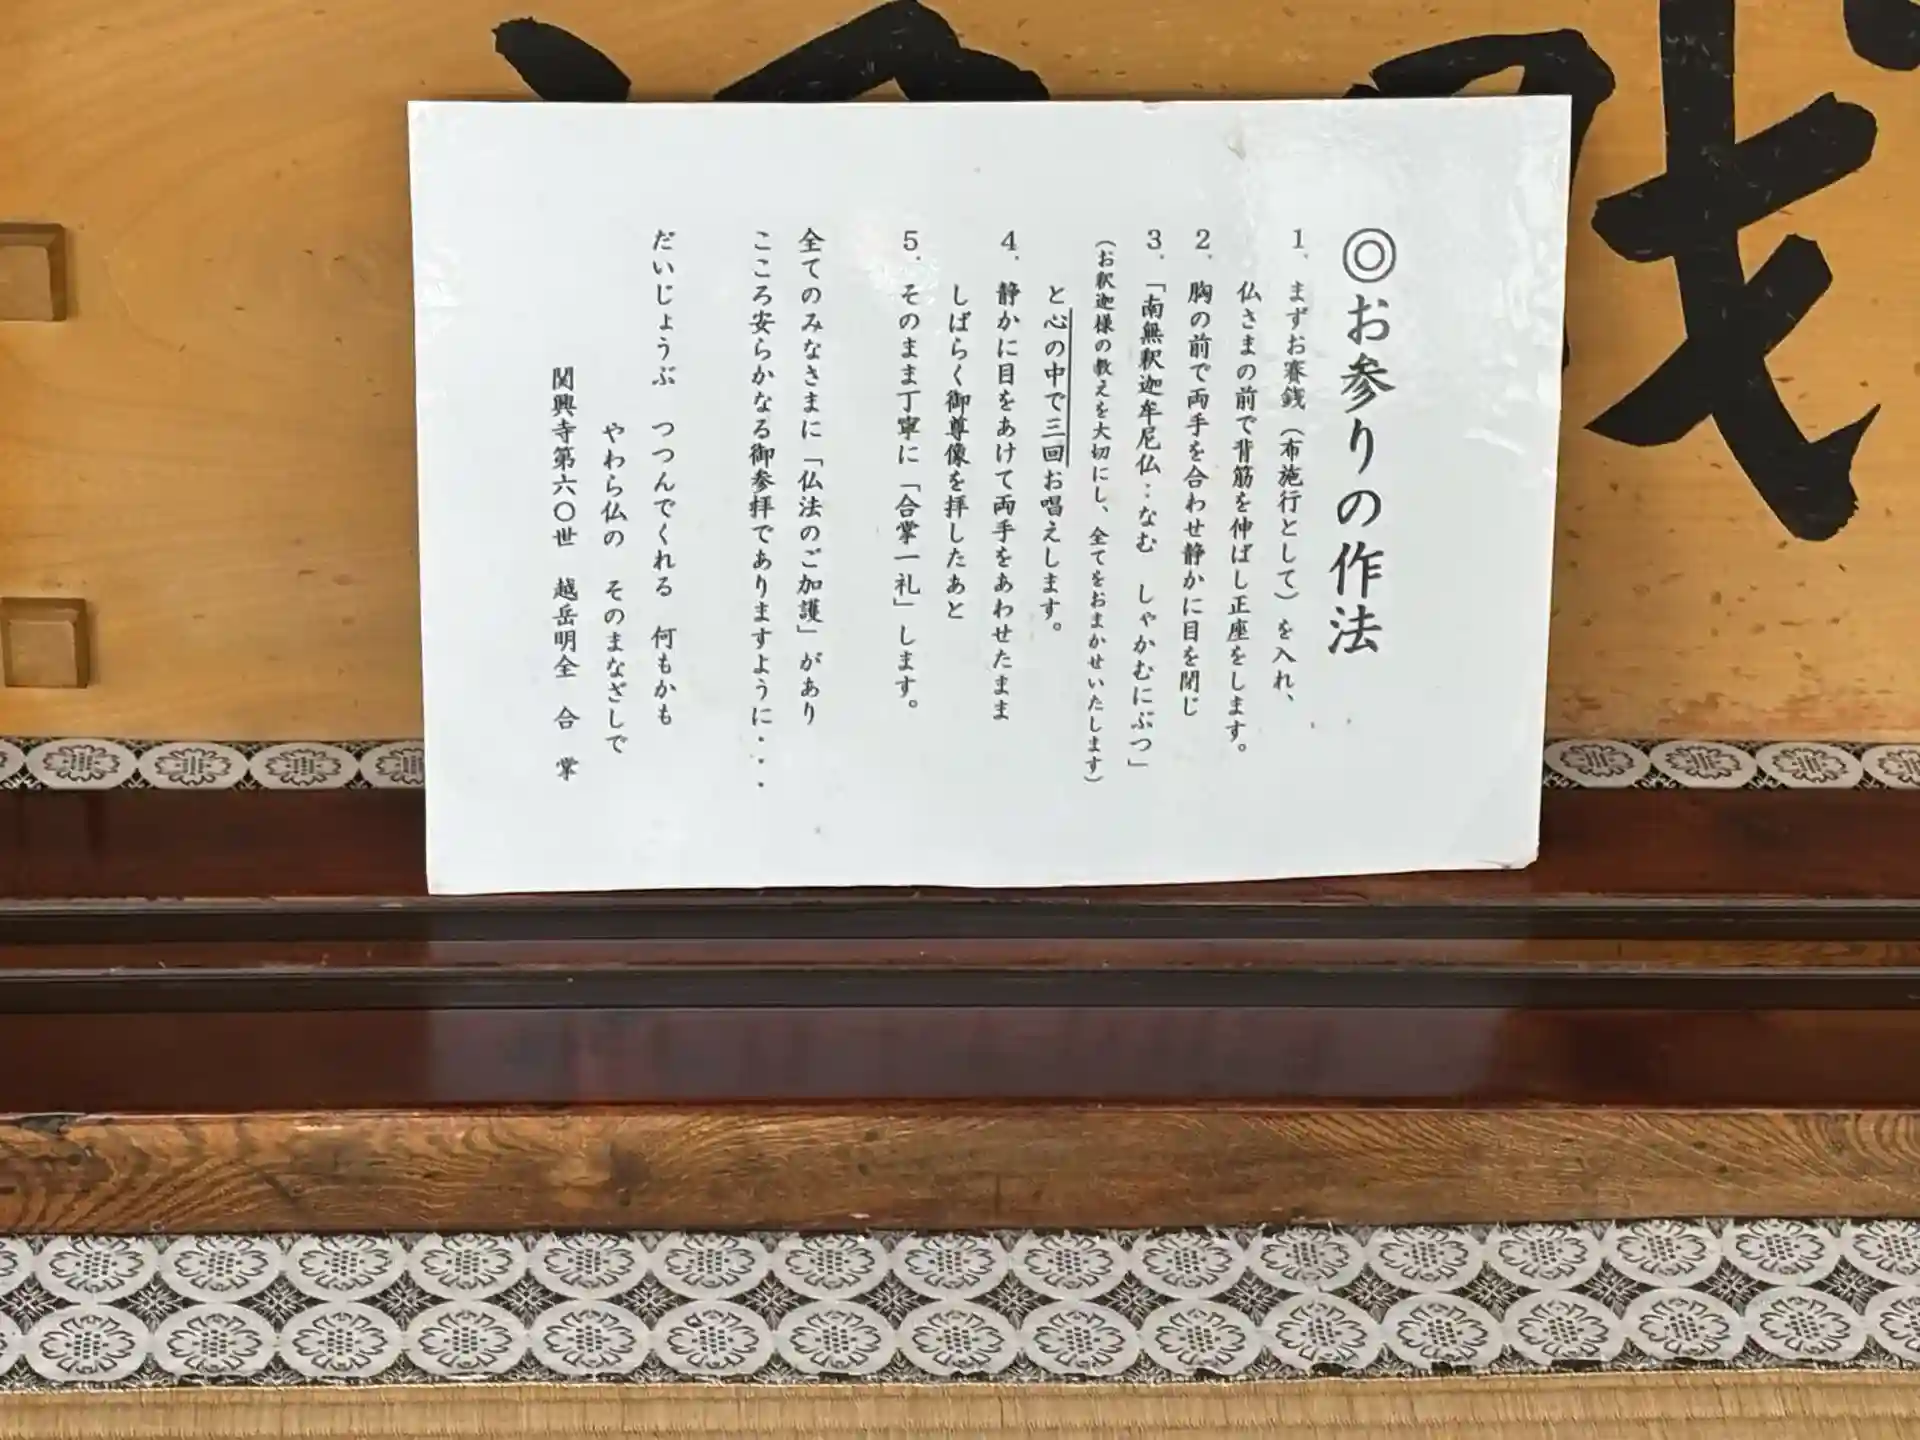 ◎お参りの作法
1．まずお賽銭（布施行として）を入れ、
仏さまの前で背筋を伸ばし正座をします。
2．胸の前で両手を合わせ静かに目を閉じ
3．「南無釈迦牟尼仏：なむ　しゃかむにぶつ」
（お釈迦様の教えを大切にし、全てをおまかせいたします）
と心の中で三回お唱えします。
4．静かに目をあけて両手をあわせたまま
しばらく御尊像を拝したあと
5．そのまま丁寧に「合掌一礼」します。
全てのみなさまに「仏法のご加護」があり
こころ安らかなる御参拝でありますように・・・
だいじょうぶ　つつんでくれる　何もかも
やわら仏の　そのまなざしで
関興寺第六〇世　越岳明全　合　掌